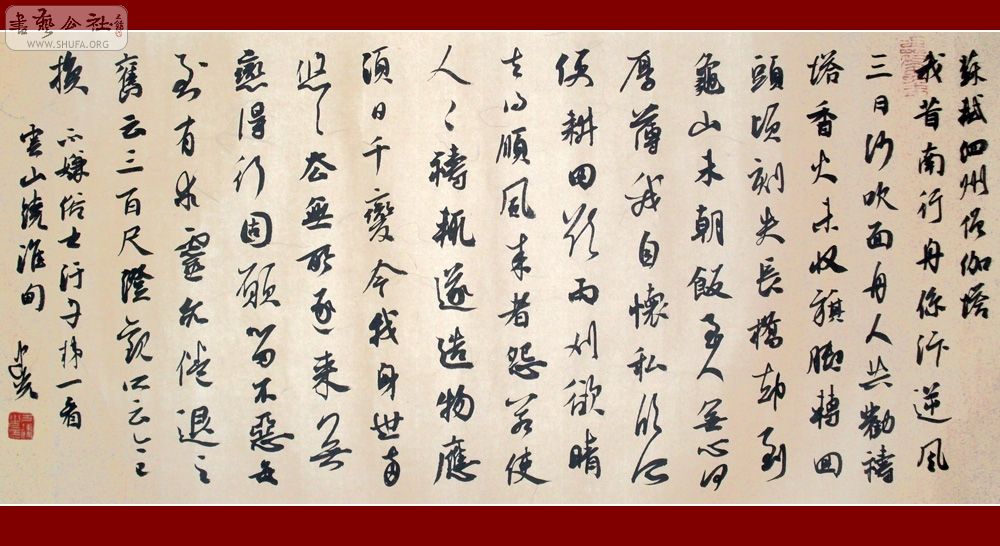 書藝公社
WWW.SHUFA.ORG
蘇軾泗州僧伽塔
我昔南行舟係汴逆風
三日沙吹面舟人共勸禱
塔香火未收旗腳轉回
頭頃刻失長橋却到
龜山未朝飯至人無心何
厚薄我自懷私欣所
便耕田欲雨刈欲晴
去得順風來者怨若使
人〻禱輒遂造物應
須日千變今我身世兩
悠〻去無所逐來無
戀得行固願留不惡每
到有求靈亦倦退之
舊云三百尺澄觀所云今已
換不嫌俗士汙丹梯一看
雲山繞淮甸